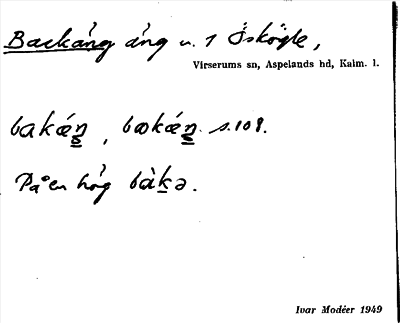 Backäng äng u. 1 Öskögle,
Virserums sn, Aspelands hd, Kalm. l.
bakǽŋ, bækǽŋ. s.108.
På en hög bàkə.
Ivar Modéer 1949